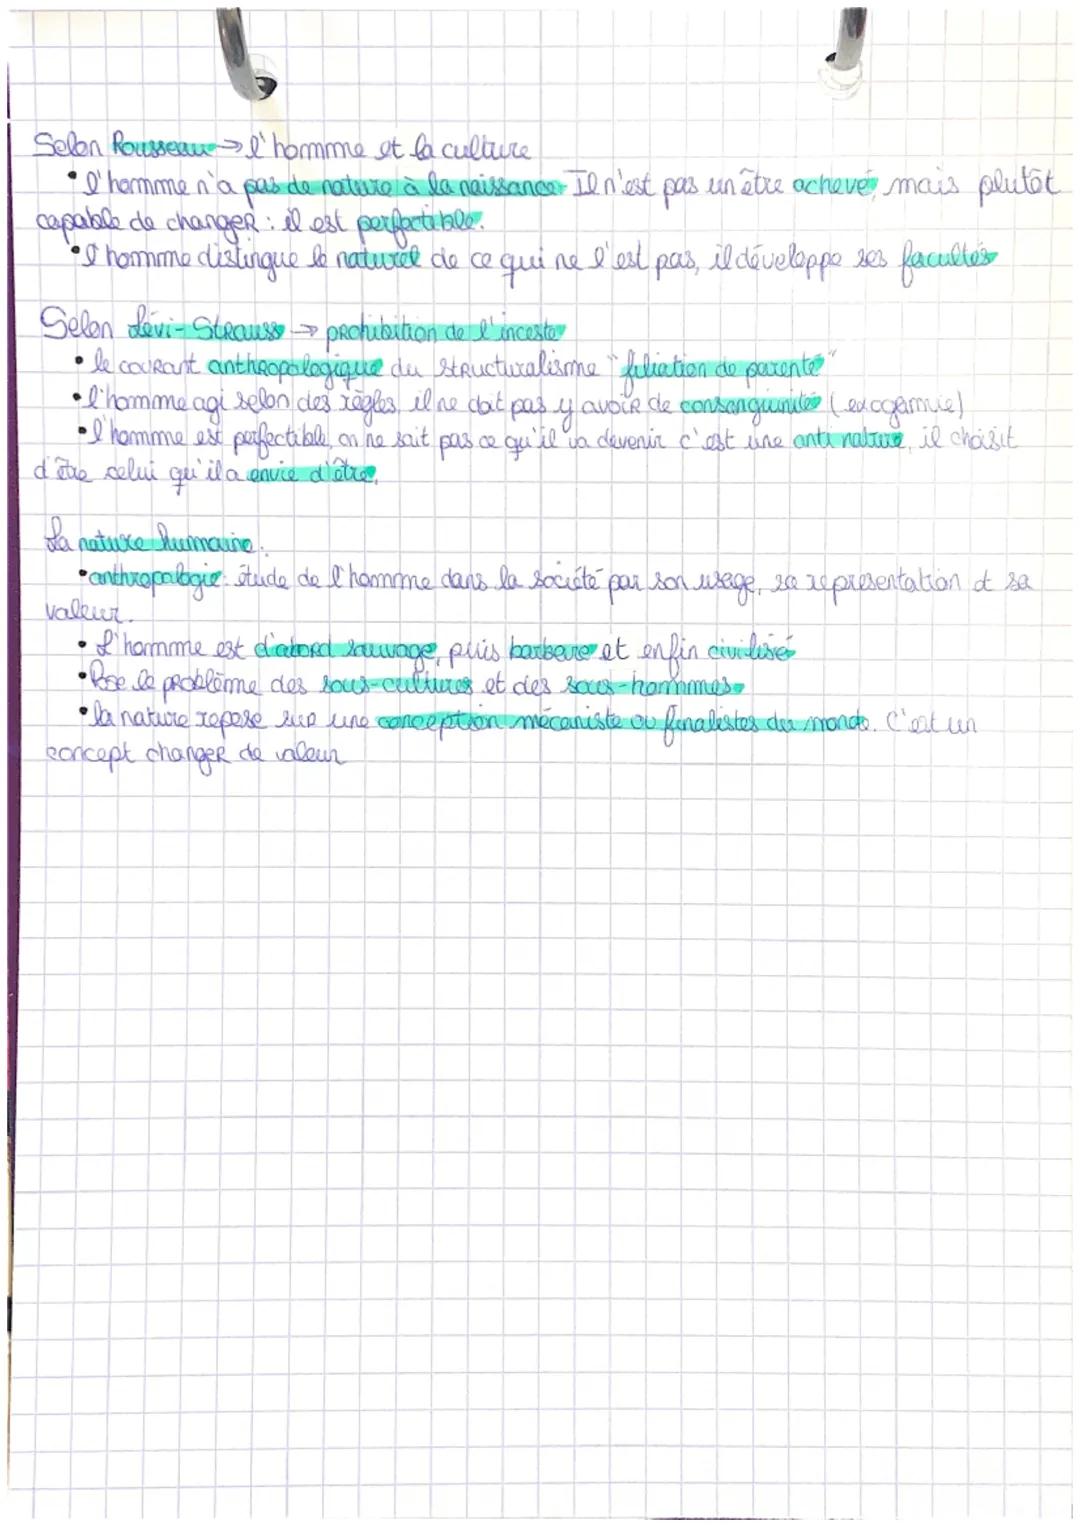 Selon Rousseau → l'homme et la culture
• l'homme n'a pas de nature à la naissance. Il n'est pas un être achevé, mais plutôt
capable de changer : il est perfectible.
• l'homme distingue le naturel de ce qui ne l'est pas, il développe ses facultés
Selon Lévi-Strauss → prohibition de l'inceste
• le courant anthropologique du structuralisme "filiation de parenté"
• l'homme agi selon des règles, il ne doit pas y avoir de consanguinités (exogamie)
• l'homme est perfectible, on ne sait pas ce qu'il va devenir c'est une anti nature, il choisit
d'être celui qu'il a envie d'être.
La nature humaine.
• anthropologie : étude de l'homme dans la société par son usage, sa représentation et sa
valeur.
• L'homme est d'abord sauvage, puis barbare et enfin civilisé
• Pose le problème des sous-cultures et des sous-hommes.
• la nature repose sur une conception mécaniste ou finalistes du monde. C'est un
concept changer de valeur